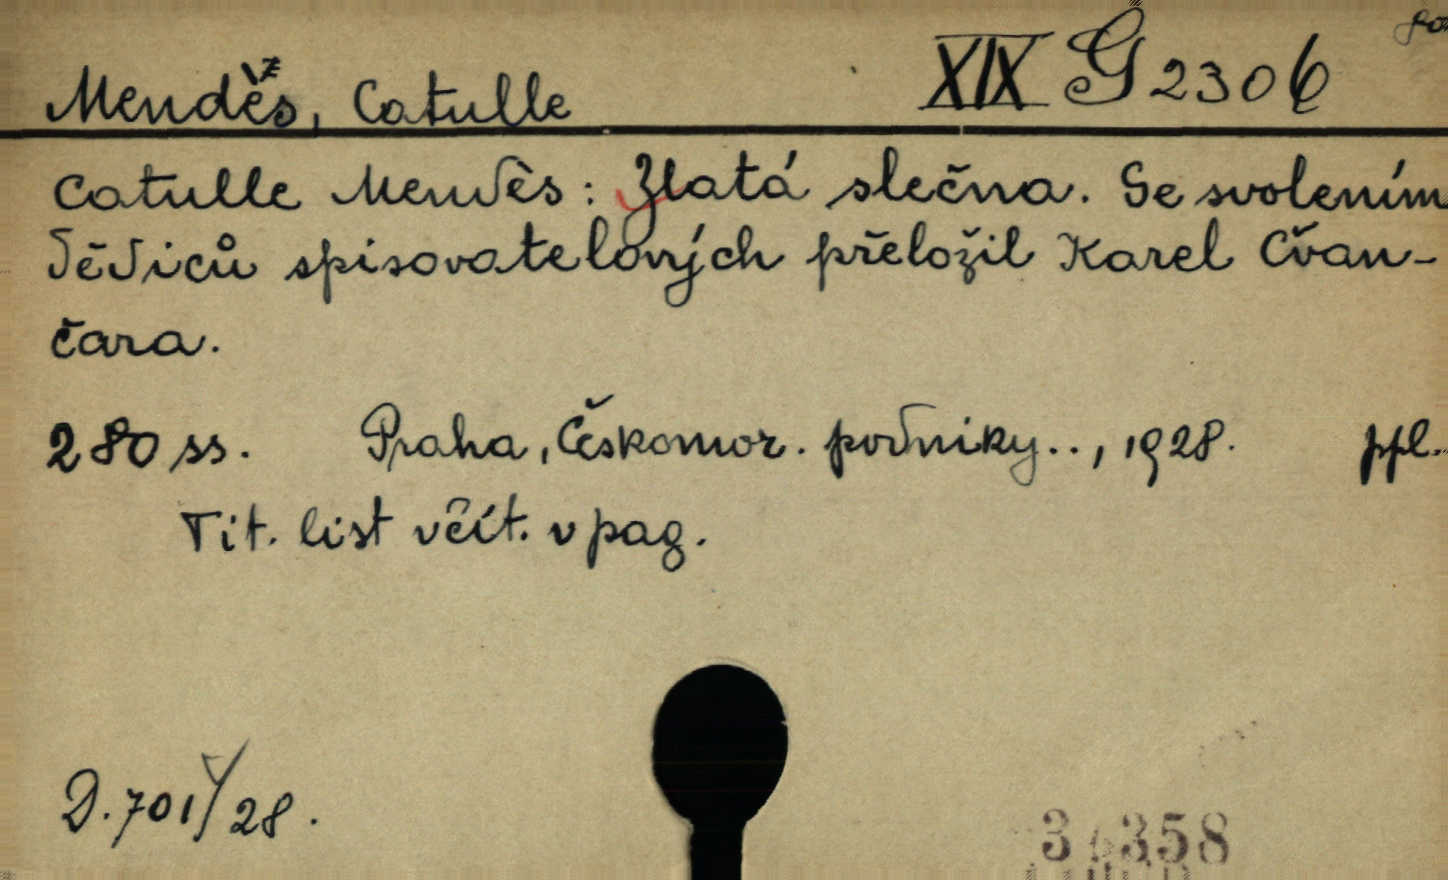 Mendès, Catulle
XIX G 2306
Catulle Mendès: Zlatá slečna. Se svolením
dědiců spisovatelových přeložil Karel Čvan-
čara.
280 ss. Praha, Českomor. podniky.., 1928. ppl.
Tit. list včít. v pag.
D. 701/28.